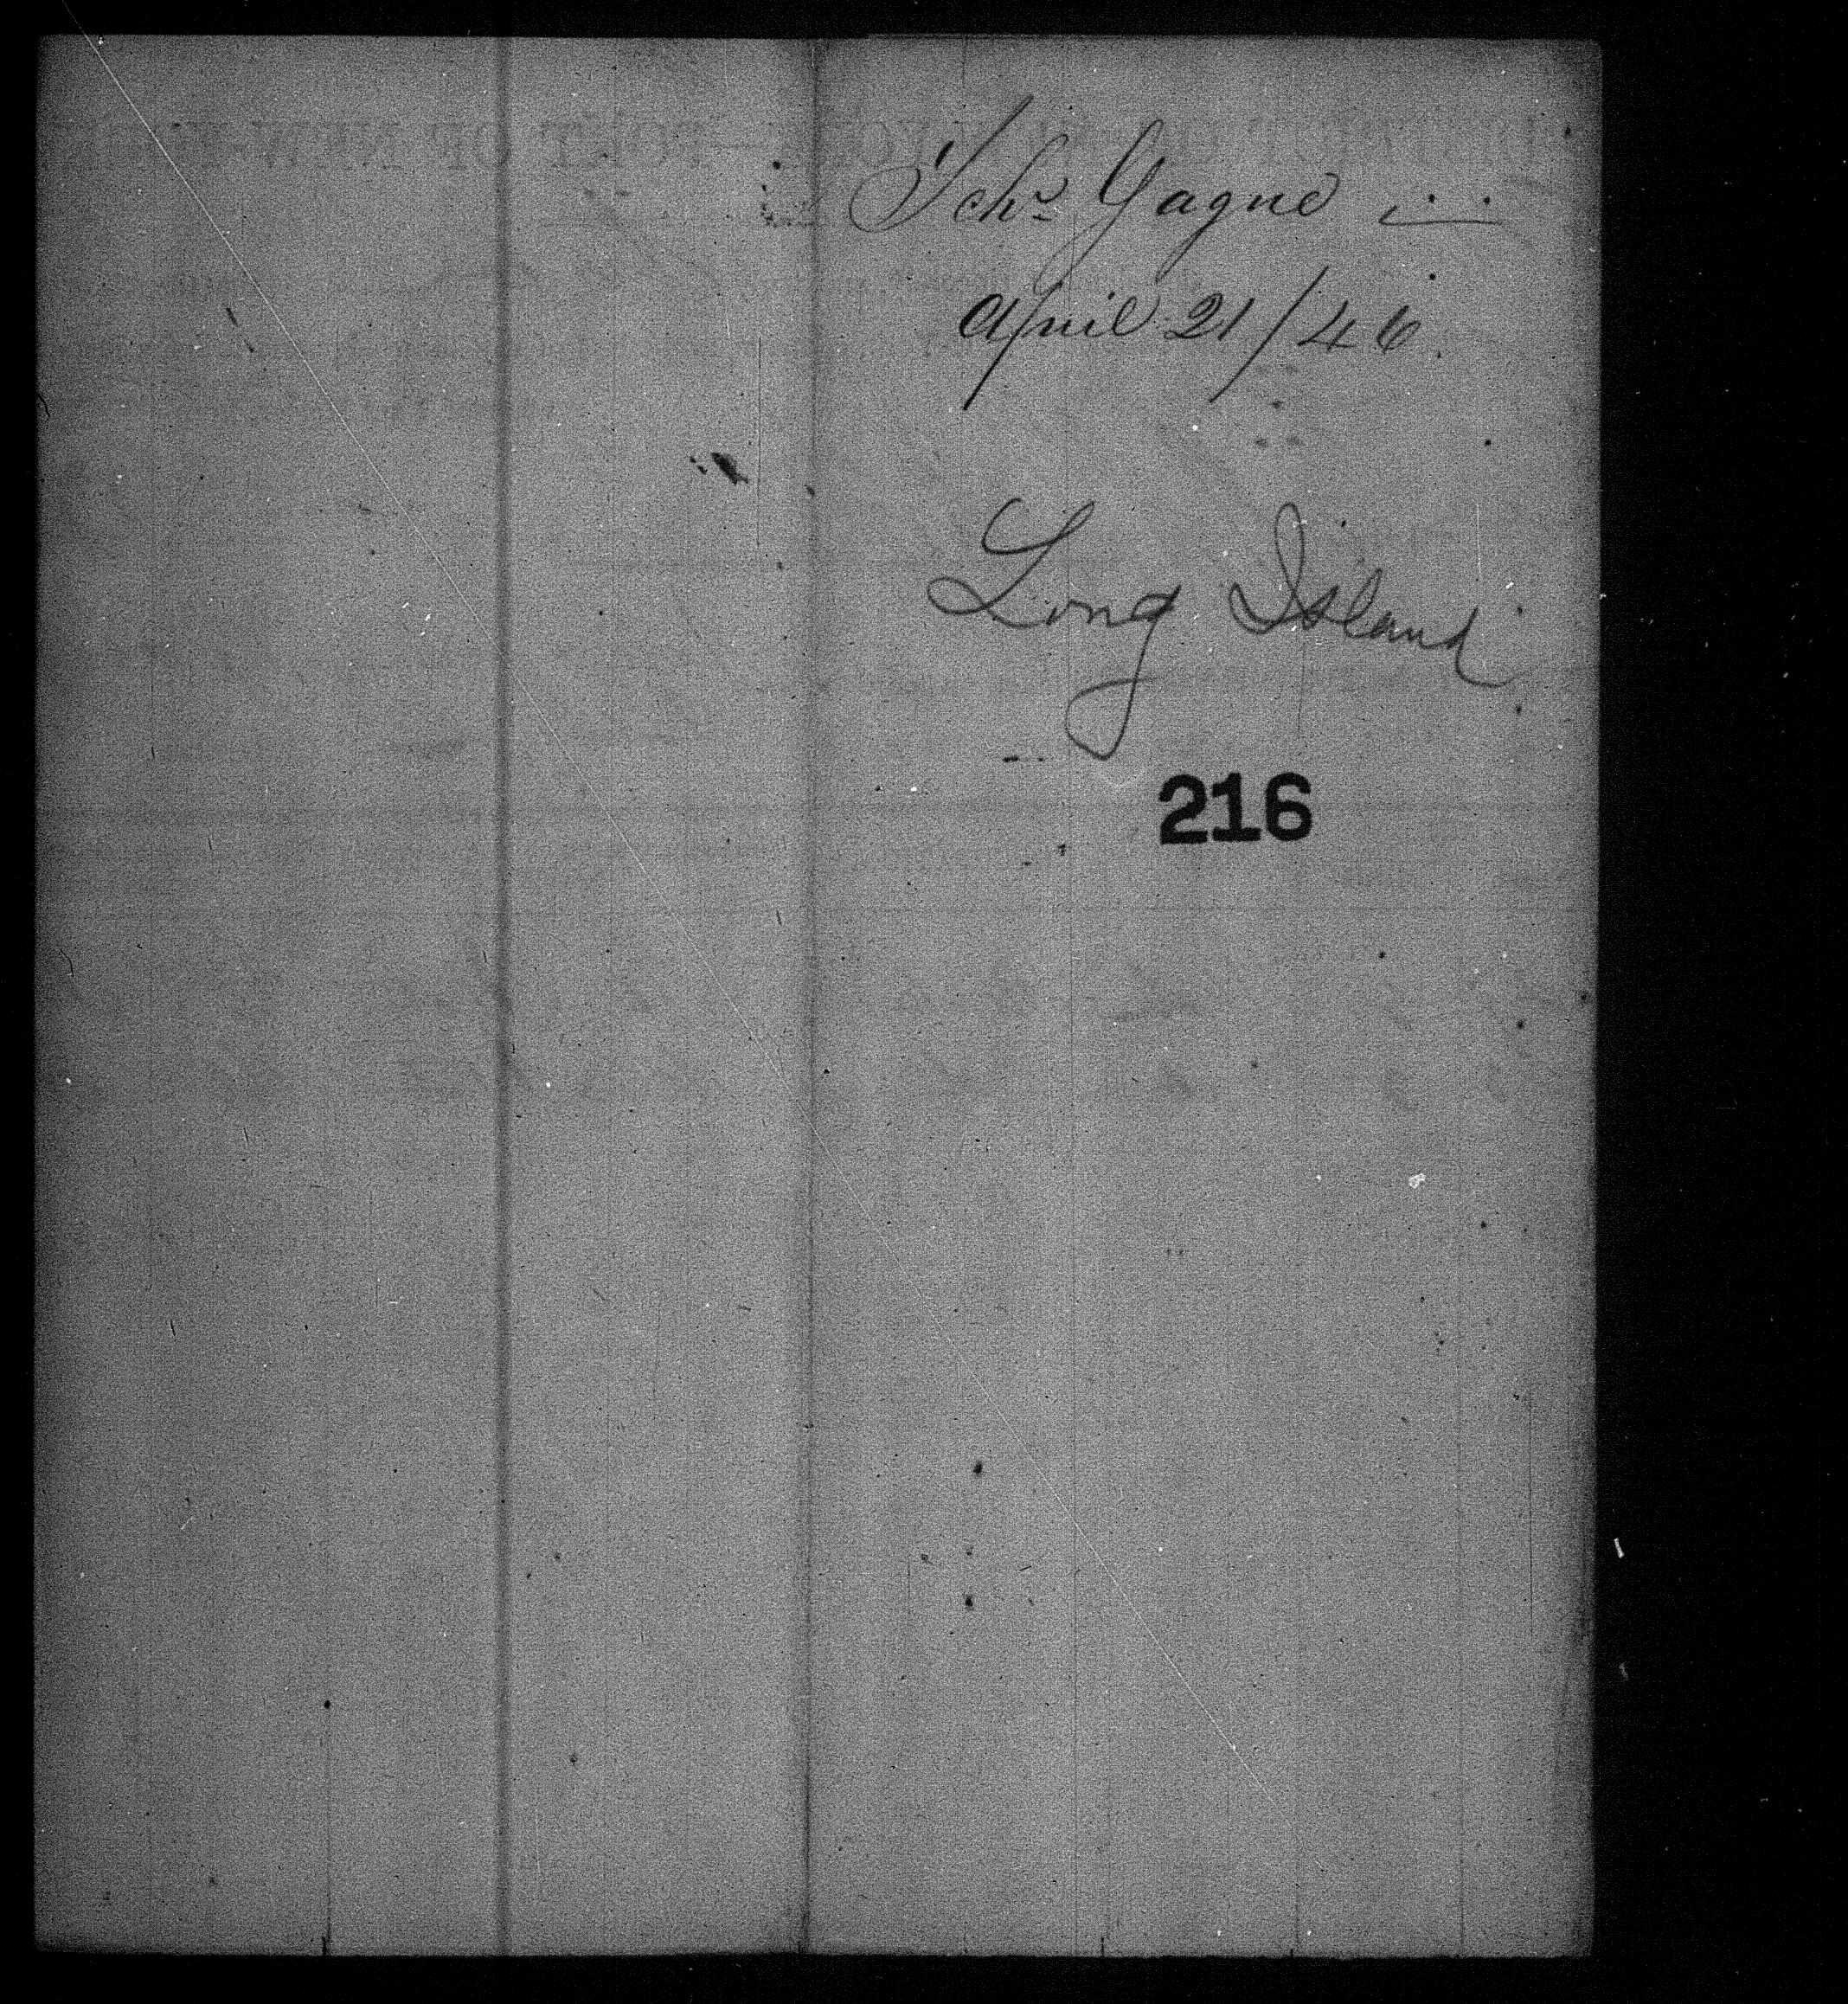 Schr Gagne
April 21/46.
Long Island
216